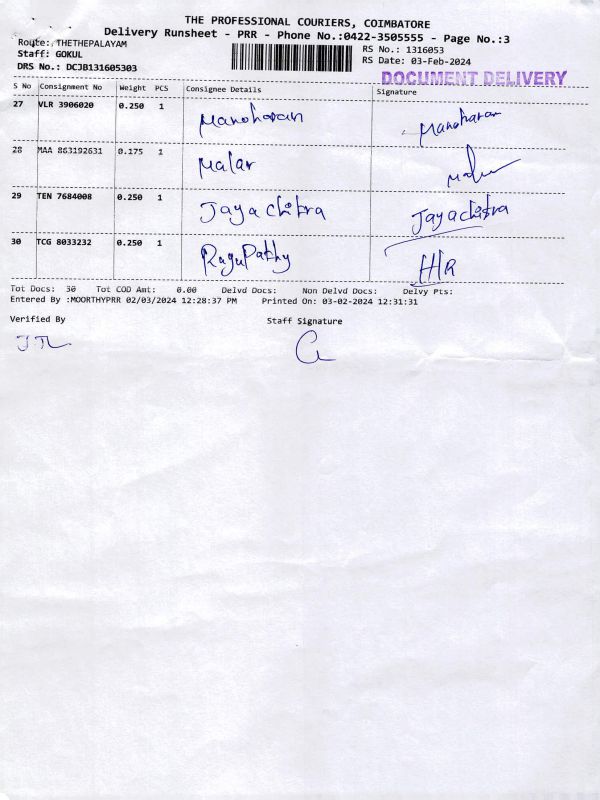 THE PROFESSIONAL COURIERS, COIMBATORE
Delivery Runsheet - PRR - Phone No.:0422-3505555 - Page No.:3
Route: THETHEPALAYAM
Staff: GOKUL
DRS No.: DCJB131605303
RS No.: 1316053
RS Date: 03-Feb-2024
DOCUMENT DELIVERY
S No Consignment No Weight PCS Consignee Details Signature
27 VLR 3906020 0.250 1 Manoharan Manoharan
28 MAA 863192631 0.175 1 Malar
29 TEN 7684008 0.250 1 Jayachitra Jayachitra
30 TCG 8033232 0.250 1 RaguPathy HR
Tot Docs: 30 Tot COD Amt: 0.00 Delvd Docs: Non Delvd Docs: Delvy Pts:
Entered By :MOORTHYPRR 02/03/2024 12:28:37 PM Printed On: 03-02-2024 12:31:31
Verified By Staff Signature